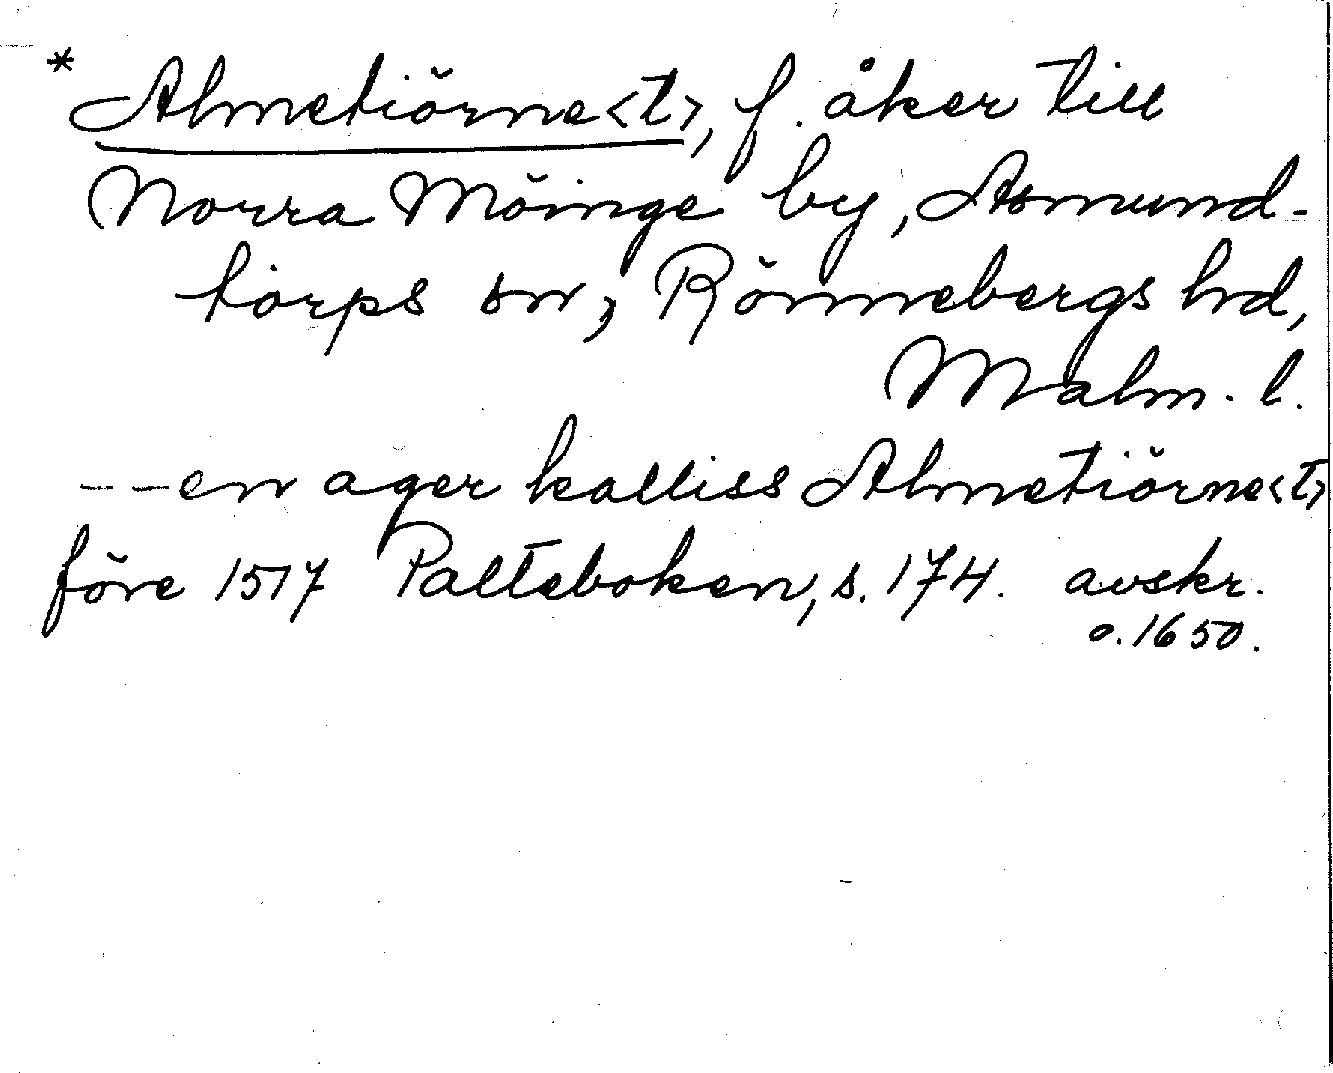 * Almetiörne<t>, f. åker till
Norra Möinge by, Asmund-
torps sn, Rönnebergs hd,
Malm. l.
-- en ager kalliss Almetiörne<t>
före 1517 Palteboken, s. 174. avskr.
o. 1650.